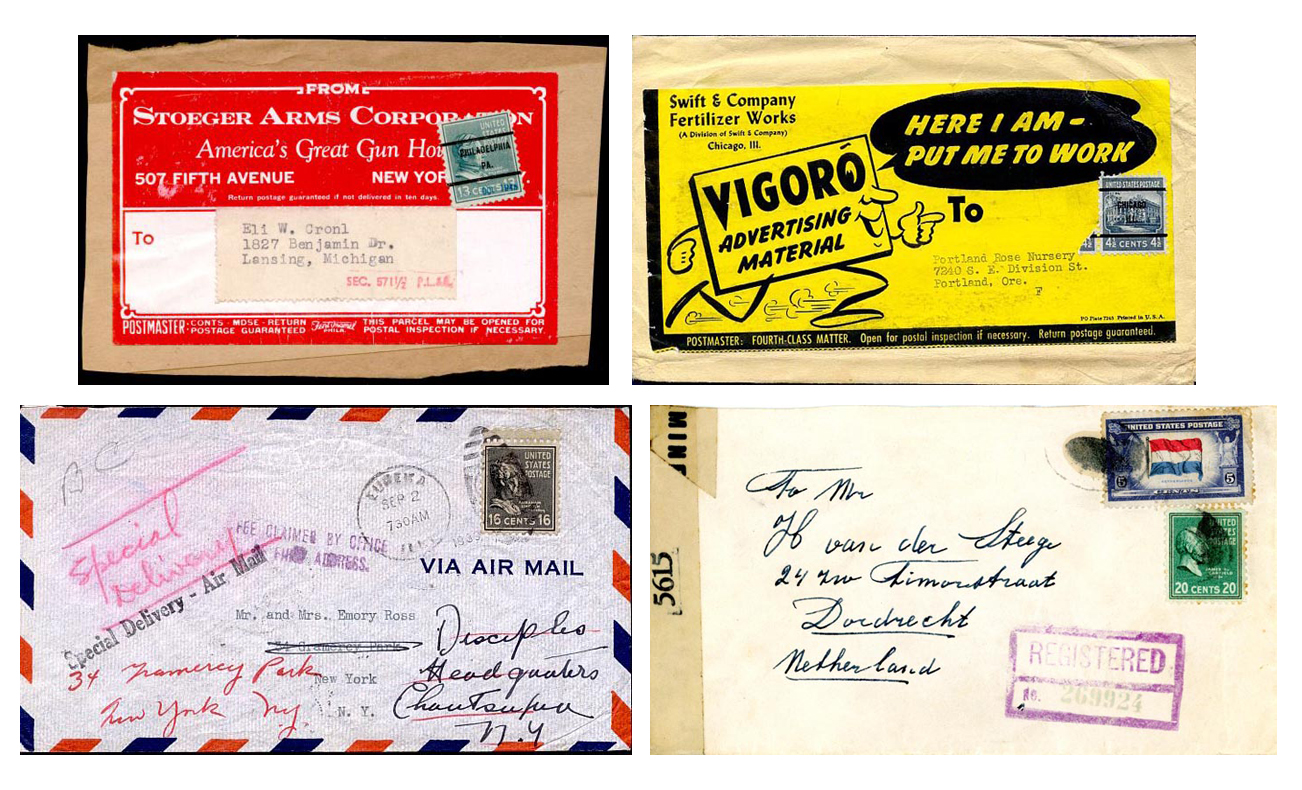 FROM
STOEGER ARMS CORPORATION
America's Great Gun Hou
507 FIFTH AVENUE NEW YOR
Return postage guaranteed if not delivered in ten days.
UNITED
STATES
PHILADELPHIA
PA.
13 CENTS 13
To
Eli W. Cronl
1827 Benjamin Dr.
Lansing, Michigan
SEC. 571½ P.L.&R.
POSTMASTER: CONTS - MDSE - RETURN POSTAGE GUARANTEED
THIS PARCEL MAY BE OPENED FOR POSTAL INSPECTION IF NECESSARY.
Swift & Company
Fertilizer Works
(A Division of Swift & Company)
Chicago, Ill.
HERE I AM -
PUT ME TO WORK
VIGORO
ADVERTISING
MATERIAL
To
UNITED STATES POSTAGE
CHICAGO
ILL.
4½ 4½ CENTS 4½
Portland Rose Nursery
7240 S. E. Division St.
Portland, Ore.
F
PO Plate 7245 Printed in U.S.A.
POSTMASTER: FOURTH-CLASS MATTER. Open for postal inspection if necessary. Return postage guaranteed.
A C
Special
Delivery
EUREKA
SEP 2
730AM
UNITED
STATES
POSTAGE
ABRAHAM
LINCOLN
16 CENTS 16
FEE CLAIMED BY OFFICE
FIRST ADDRESS.
VIA AIR MAIL
Special Delivery - Air Mail
Mr. and Mrs. Emory Ross
34 Gramercy Park
New York
N. Y.
34 Gramercy Park
New York Ny.
Disciples
Headquaters
Chautauqua
N.Y
MINI
5615
To Mr
H van der Steege
24 zw Timorstraat
Dordrecht
Netherland
UNITED STATES POSTAGE
5 5
NETHERLANDS
CENTS
UNITED
STATES
POSTAGE
JAMES A.
GARFIELD
20 CENTS 20
REGISTERED
No. 269924